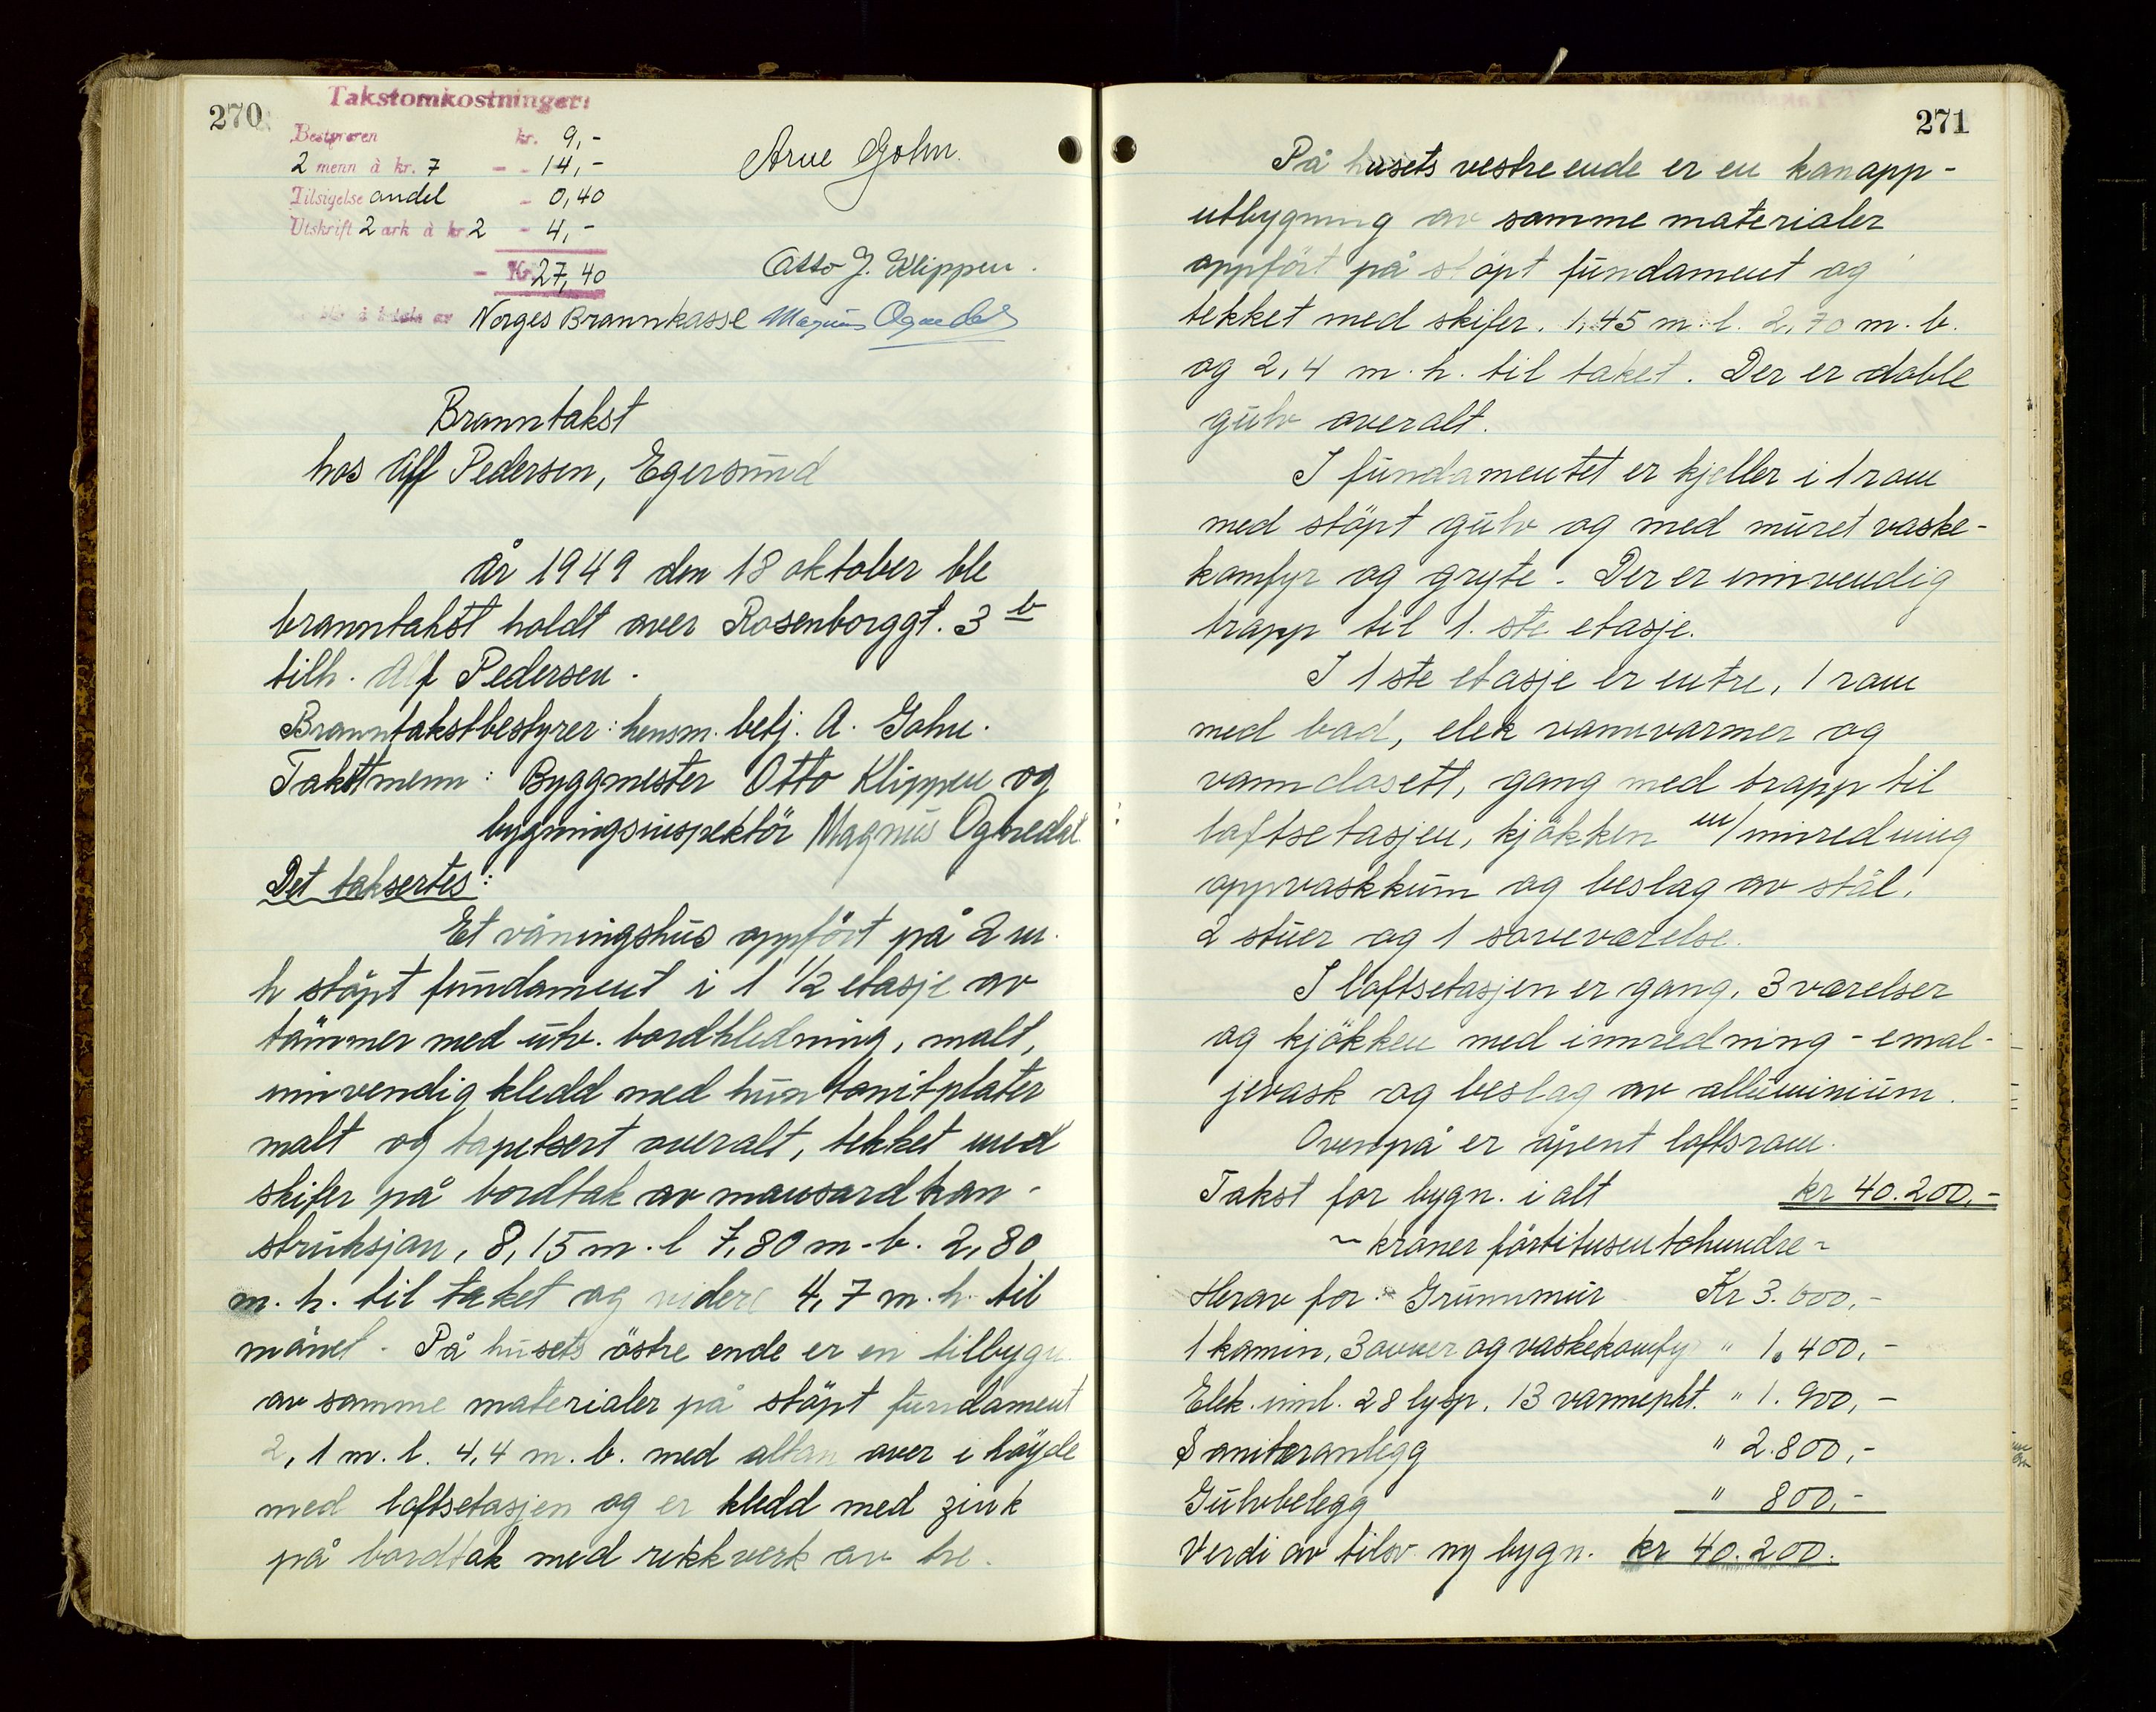 270
Takstomkostninger:
Bestyreren kr. 9,-
2 menn à kr. 7 - - 14,-
Tilsigelse andel - 0,40
Utskrift 2 ark à kr 2 - 4,-
- Kr. 27,40
å betale av Norges Brannkasse
Arve Gohn.
Otto J. Klippen.
Magnus Ognedal
Branntakst
hos Alf Pedersen, Egersund
År 1949 den 18 oktober ble
branntakst holdt over Rosenborggt. 3 b
tilh. Alf Pedersen.
Branntakstbestyrer: hensm. betj. A. Gohn.
Takstmenn: Byggmester Otto Klippen og
bygningsinspektör Magnus Ognedal.
Det taksertes:
Et våningshus oppfört på 2 m.
h stöpt fundament i 1 1/2 etasje av
tömmer med utv. bordkledning, malt,
innvendig kledd med huntonitplater
malt og tapetsert overalt, tekket med
skifer på bordtak av mansardkon-
struksjon, 8,15 m. l 7,80 m. b. 2,80
m. h. til taket og videre 4,7 m. h. til
mönet. På husets östre ende er en tilbygn.
av samme materialer på stöpt fundament
2,1 m. l. 4,4 m. b. med altan over i höyde
med loftsetasjen og er kledd med zink
på bordtak med rekkverk av tre.
271
På husets vestre ende er en karnapp-
utbygning av samme materialer
oppfört på stöpt fundament og
tekket med skifer. 1,45 m. l. 2,70 m. b.
og 2,4 m. h. til taket. Der er doble
gulv overalt.
I fundamentet er kjeller i 1 rom
med stöpt gulv og med muret vaske-
komfyr og gryte. Der er innvendig
trapp til 1. ste etasje.
I 1ste etasje er entre, 1 rom
med bad, elek vannvarmer og
vannclosett, gang med trapp til
loftsetasjen, kjökken m/innredning
oppvaskkum og beslag av stål,
2 stuer og 1 soveværelse.
I loftsetasjen er gang, 3 værelser
og kjökken med innredning - emal-
jevask og beslag av alluminium.
Ovenpå er åpent loftsrom.
Takst for bygn. i alt kr 40.200,-
~ kroner förtitusentohundre ~
Herav for: Grunnmur Kr 3.600,-
1 kamin, 3 ovner og vaskekomfyr " 1.400,-
Elek. innl. 28 lysp. 13 varmepkt. " 1.900,-
Saniteranlegg " 2.800,-
Gulvbelegg " 800,-
Verdi av tilsv. ny bygn. kr 40.200.